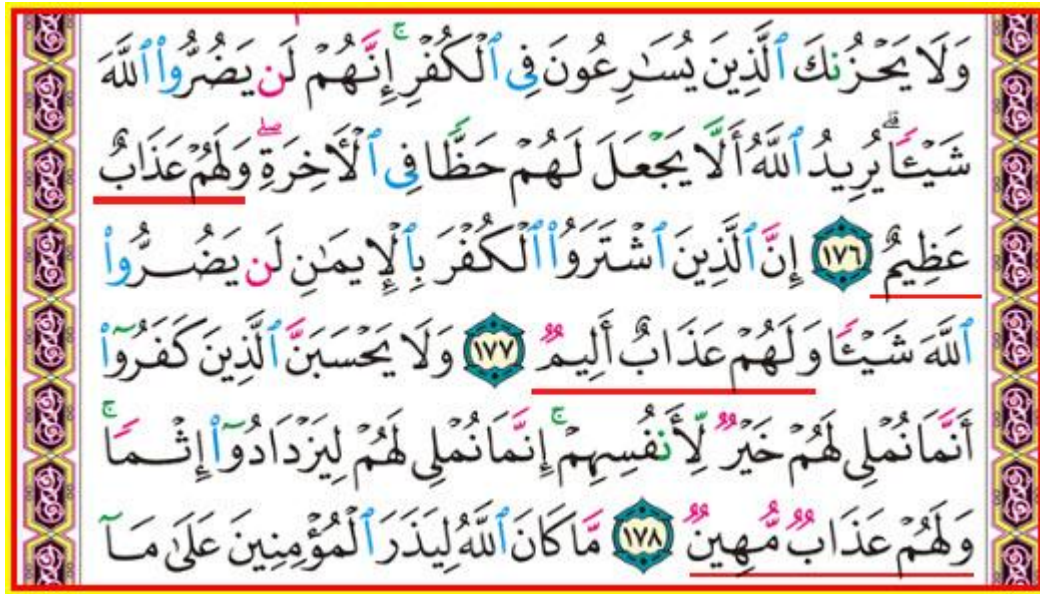 وَلَا يَحْزُنكَ ٱلَّذِينَ يُسَـٰرِعُونَ فِى ٱلْكُفْرِ ۚ إِنَّهُمْ لَن يَضُرُّوا۟ ٱللَّهَ
شَيْـًٔا ۗ يُرِيدُ ٱللَّهُ أَلَّا يَجْعَلَ لَهُمْ حَظًّا فِى ٱلْـَٔاخِرَةِ ۖ وَلَهُمْ عَذَابٌ
عَظِيمٌ ﴿١٧٦﴾ إِنَّ ٱلَّذِينَ ٱشْتَرَوُا۟ ٱلْكُفْرَ بِٱلْإِيمَـٰنِ لَن يَضُرُّوا۟
ٱللَّهَ شَيْـًٔا وَلَهُمْ عَذَابٌ أَلِيمٌ ﴿١٧٧﴾ وَلَا يَحْسَبَنَّ ٱلَّذِينَ كَفَرُوٓا۟
أَنَّمَا نُمْلِى لَهُمْ خَيْرٌ لِّأَنفُسِهِمْ ۚ إِنَّمَا نُمْلِى لَهُمْ لِيَزْدَادُوٓا۟ إِثْمًا ۚ
وَلَهُمْ عَذَابٌ مُّهِينٌ ﴿١٧٨﴾ مَّا كَانَ ٱللَّهُ لِيَذَرَ ٱلْمُؤْمِنِينَ عَلَىٰ مَآ